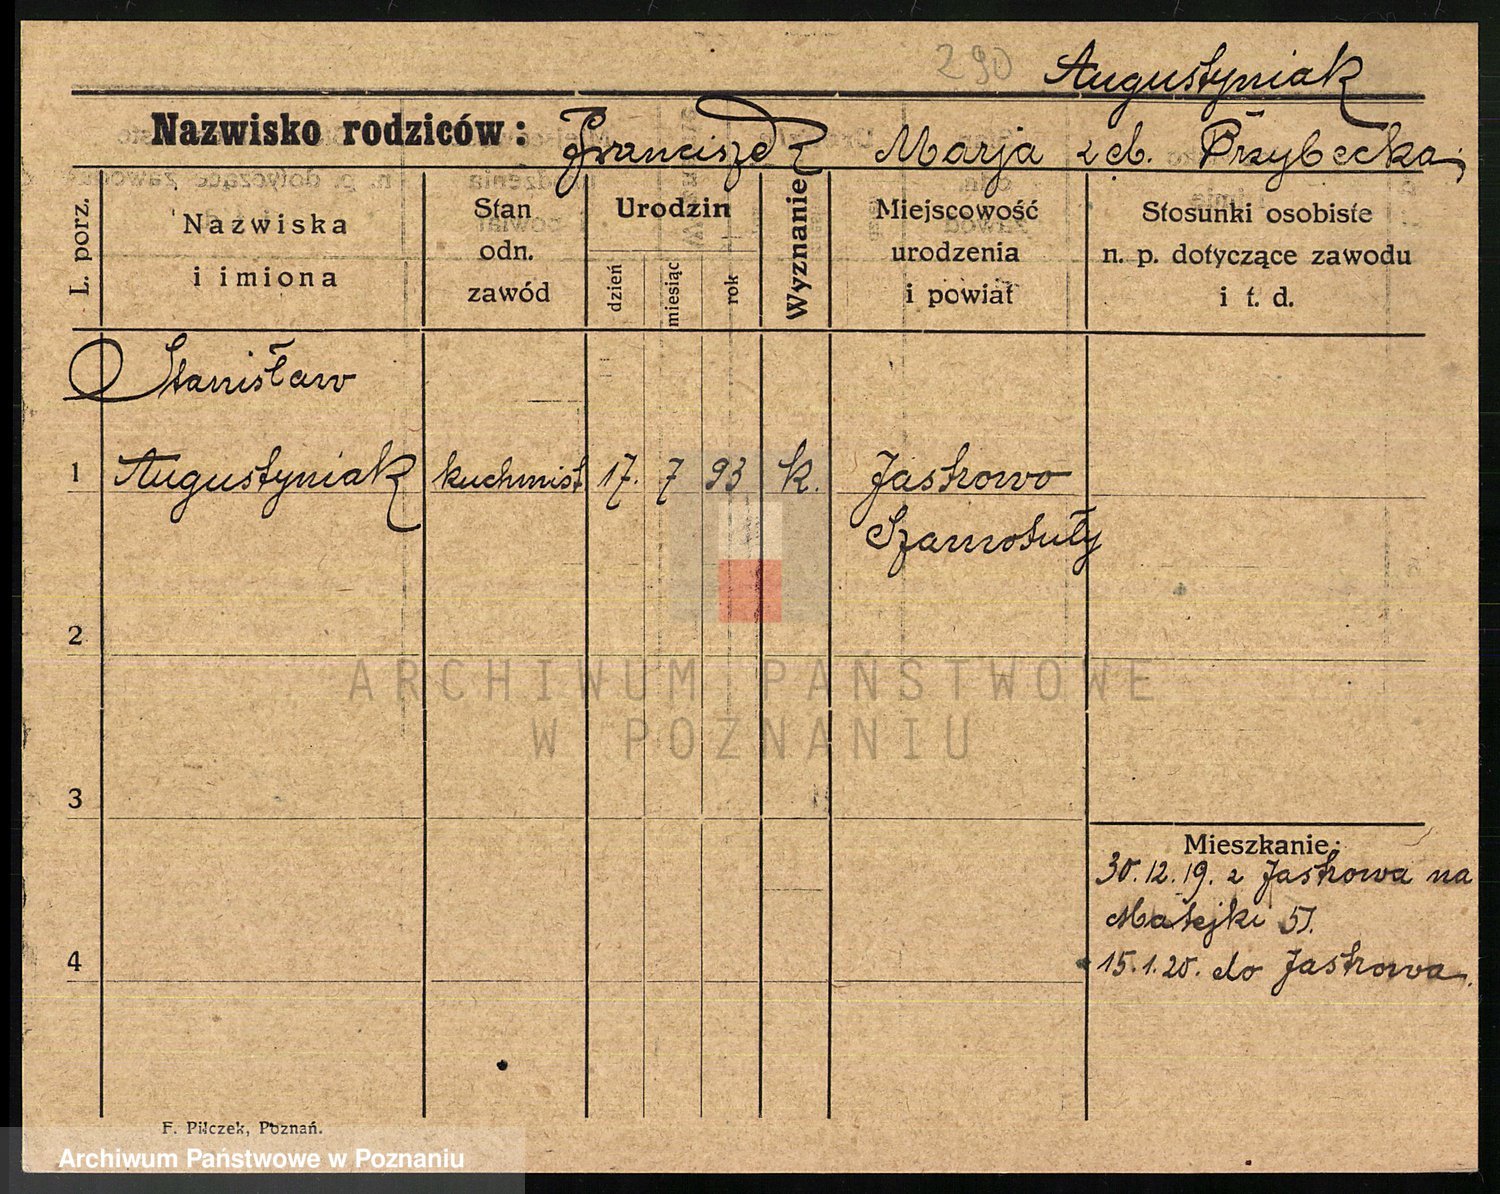 290
Augustyniak
Nazwisko rodziców: Franciszek Marja z d. Przybecka
L. porz.
Nazwiska
i imiona
Stan
odn.
zawód
Urodzin
dzień
miesiąc
rok
Wyznanie
Miejscowość
urodzenia
i powiat
Stosunki osobiste
n. p. dotyczące zawodu
i t. d.
Stanisław
1 Augustyniak kuchmist 17. 7 93 k. Jastrowo
Szamotuły
2
ARCHIWUM PAŃSTWOWE
W POZNANIU
3
Mieszkanie:
30.12.19. z Jastrowa na
Matejki 51.
4
15.1.20. do Jastrowa.
F. Pilczek, Poznań.
Archiwum Państwowe w Poznaniu